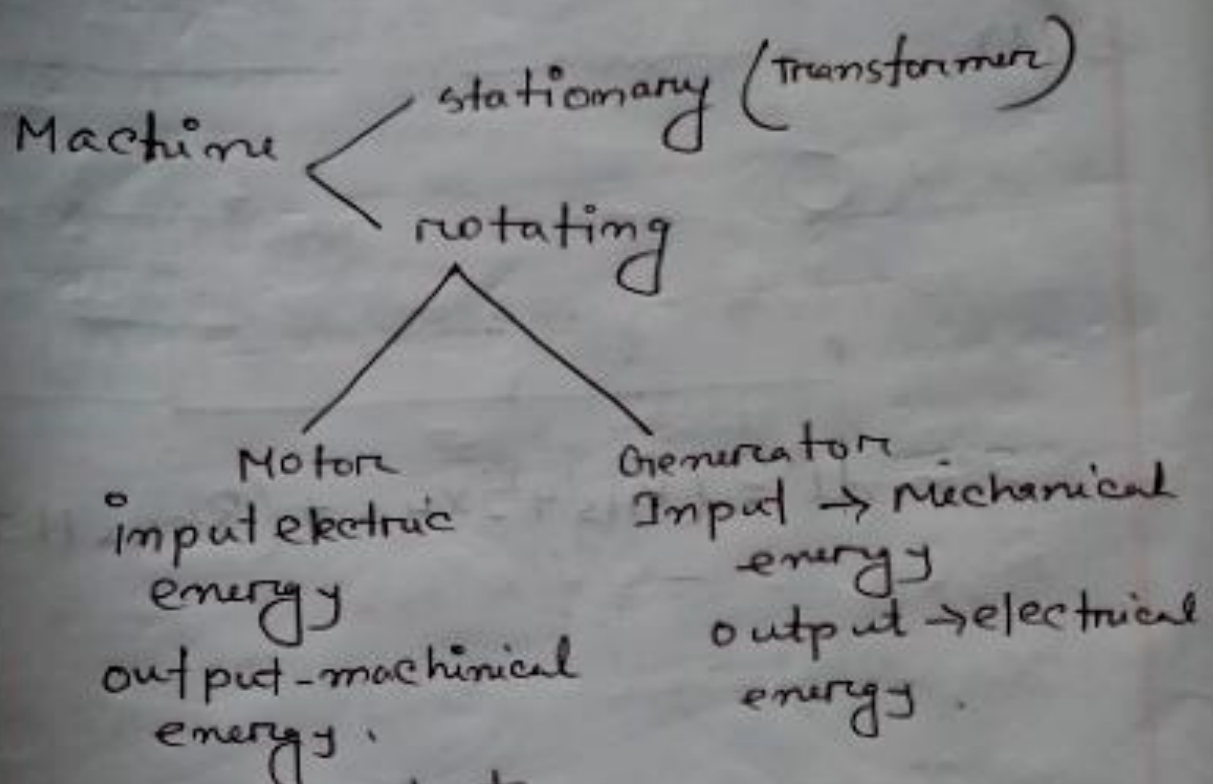 Machine
stationary (Transformer)
rotating
Motor
input electric
energy
output-machinical
energy.
Generator
Input → Mechanical
energy
output → electrical
energy.